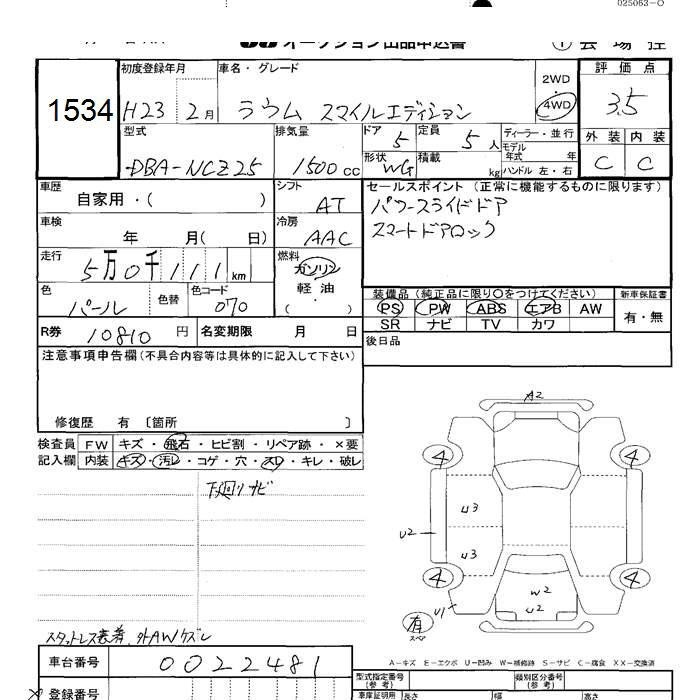 025063-O
オークション出品申込書 ① 会場控
1534
初度登録年月 H23 2月
車名・グレード ラウム スマイルエディション
2WD・4WD
評価点 3.5
外装 C 内装 C
型式 DBA-NCZ25
排気量 1500cc
ドア 5 定員 5人
形状 WG 積載 kg
ディーラー・並行
モデル年式 年
ハンドル 左・右
車歴 自家用・( )
シフト AT
セールスポイント(正常に機能するものに限ります)
パワースライドドア
スマートドアロック
車検 年 月( 日)
冷房 AAC
走行 5万0千111km
燃料 ガソリン・軽油・( )
色 パール 色替 色コード 070
装備品(純正品に限り○をつけてください) 新車保証書
PS PW ABS エアB AW 有・無
SR ナビ TV カワ
R券 10810円 名変期限 月 日
後日品
注意事項申告欄(不具合内容等は具体的に記入して下さい)
修復歴 有 〔箇所 〕
検査員 FW キズ・飛石・ヒビ割・リペア跡・×要
記入欄 内装 キズ・汚レ・コゲ・穴・スレ・キレ・破レ
下廻りサビ
A2
4 4
U3
U2
U3
4 4
W2
U2
U1
有
スペア
スタットレス装着 外AWケズレ
A-キズ E-エクボ U-凹み W-補修跡 S-サビ C-腐食 XX-交換済
車台番号 0022481
型式指定番号(参考) 類別区分番号(参考)
登録番号
車庫証明用 長さ 幅 高さ